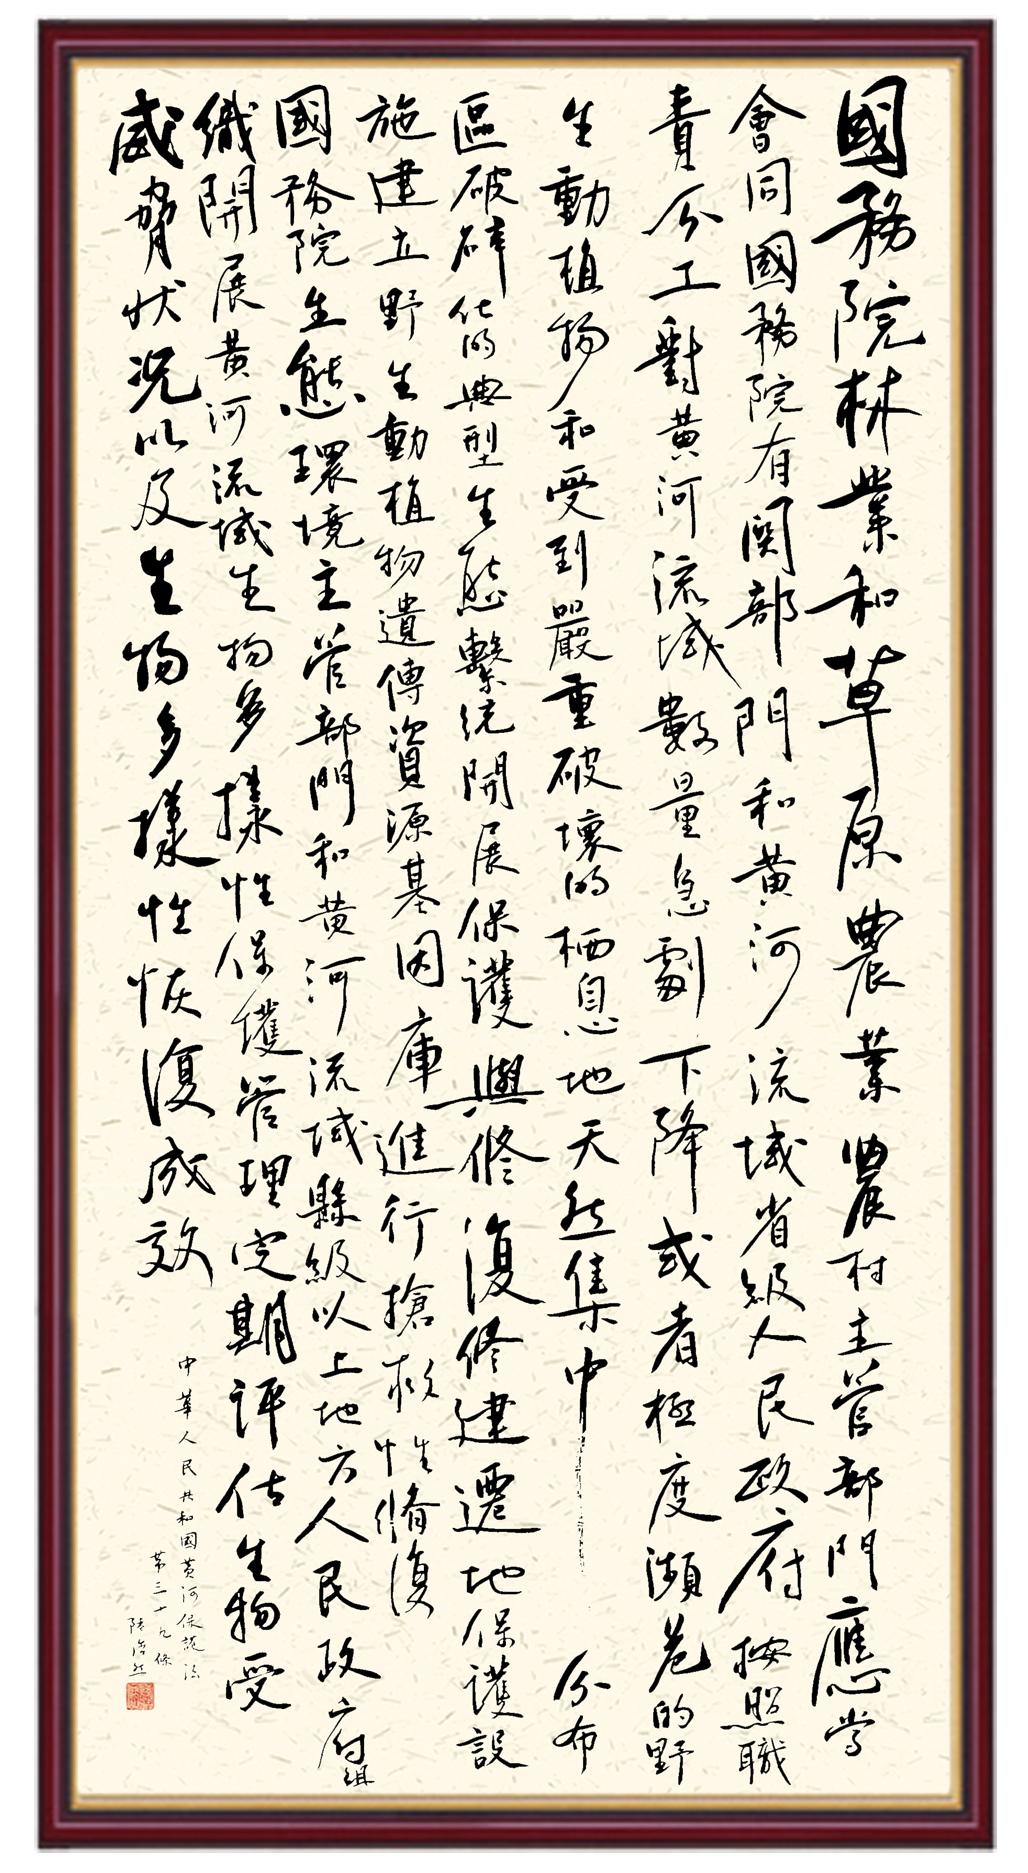 國務院林業和草原農業農村主管部門應當
會同國務院有関部門和黄河流域省級人民政府按照職
責分工對黄河流域數量急劇下降或者極度瀕危的野
生動植物和受到嚴重破壞的栖息地天然集中分布
區破碎化的典型生態繫統開展保護與修復修建遷地保護設
施建立野生動植物遺傳資源基因庫進行搶救性脩復
國務院生態環境主管部門和黄河流域縣級以上地方人民政府組
織開展黄河流域生物多樣性保護管理定期評估生物受
威脅状况以及生物多樣性恢復成效
中華人民共和國黄河保護法
第三十九條
陸